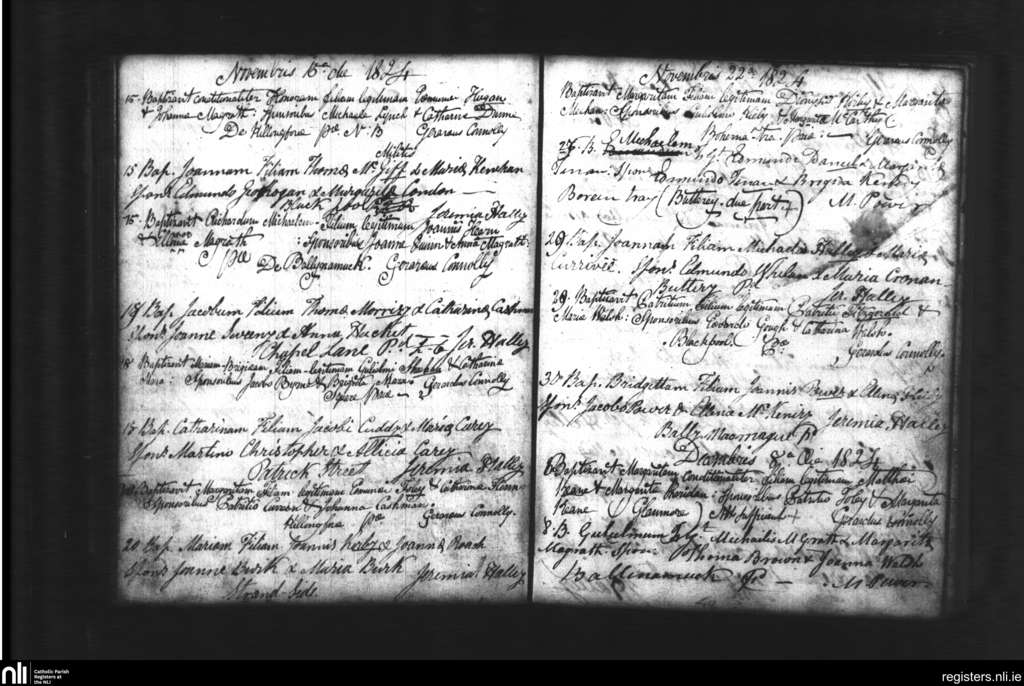 Novembris 15a die 1824
15 - Baptizavit conditionaliter Honoram Filiam legitimam Edmundi Hugan
& Johanna Magrath: Sponsoribus Michaele Lynch & Catharine Dunne
De Killongford Pd N: B Gerardus Connolly
Militis
15 Bap. Joannam Filiam Thomæ Mc Giff & Mariæ Kenehan
Spons Edmundo Geohogan & Margarita London
Black pool
Jeremia Halley
15 - Baptizavit Richardum Michaelem Filium legitimum Joannis Hearn
& Elinor Magrath : Sponsoribus Joanne Quinn & Anna Magrath:
Pd De Ballynamuck. Gerardus Connolly
18 Bap. Jacobum Filium Thomæ Morrisy & Catharinæ Cashman
Spons Joanne Sweeny & Anna Hacket
Chapel Lane Pd Jer. Halley
18 Baptizavit Mariam Brigidam Filiam legitimam Gulielmi & Catharina
Mara: Sponsoribus Jacobo Byrne & Brigida Mara:
Square Gerardus Connolly
18 Bap. Catharinam Filiam Jacobi Cuddy & Mariæ Carey
Spons Martino Christopher & Allicia Carey
Patrick Street Jeremia Halley
Baptizavit Margaritam Filiam legitimam Edmundi Foley & Catharina
Sponsoribus Patritio Curreen & Johanna Cashman:
Killongford Pd Gerardus Connolly.
20 Bap Mariam Filiam Joannis Kerby & Joannæ Roach
Spons Joanne Burk & Maria Burk
Strand-side Jeremia Halley
Novembris 22a 1824
Baptizavit Margaritam Filiam legitimam Dionysii Kirby & Margarita
Meehan: Sponsoribus Gulielmo Kirby & Margarita McCarthy
Gerardus Connolly
B. Michaelem Edmundi Daniel &
Tinan: Spons Edmundo Tinan & Brigida Kerby
Boreen tray (Buttery - due part) M. Power
29 Bap. Joannam Filiam Michaelis Halley & Mariæ
Currivie. Spons. Edmundo Whelan & Maria Cronan
Buttery Pd Jer. Halley
29. Baptizavit Patritium Filium legitimum Patritii Fitzgerald &
Maria Walsh: Sponsoribus Edvardo Gough & Catharina Walsh.
Blackpool. Pd
Gerardus Connolly.
30 Bap. Bridgettam Filiam Joannis Power & Elenæ
Spons Jacobo Power & Elena Mc Keniry
Bally Macmague Pd Jeremia Halley
Decembris 8a Die 1824
Baptizavit Margaritam Conditionaliter Filiam legitimam Matthæi
Keane & Margarita Meridan: Sponsoribus Patritio Foley & Margarita
Keane (Glanmore) Gerardus Connolly
8 B. Gulielmum Michaelis McGrath & Margarita
Magrath Spons Thoma Brown & Joanna Walsh
Ballinamuck Pd M. Power
nli
Catholic Parish
Registers at
the NLI
registers.nli.ie